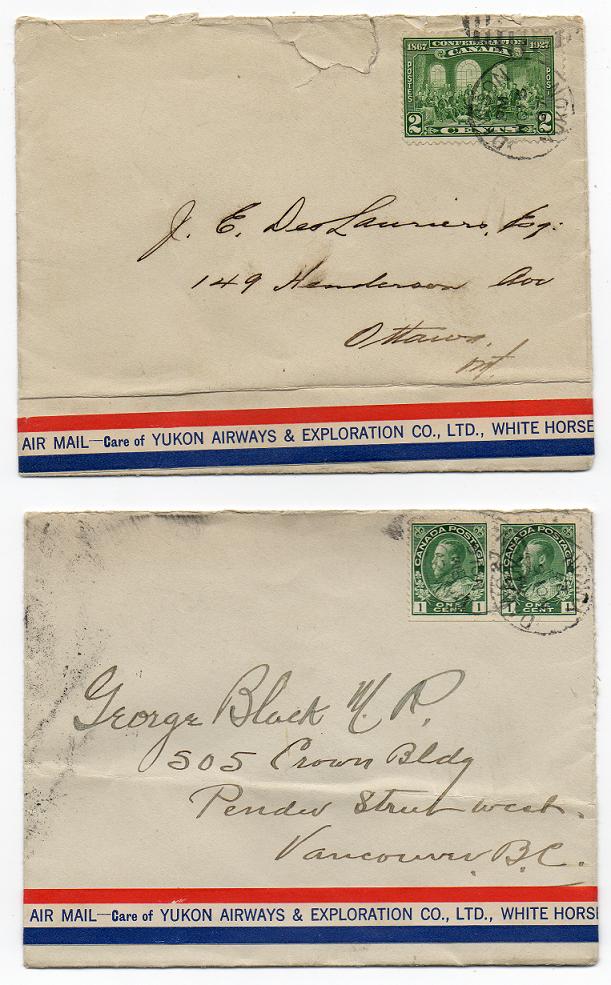 1867 CONFEDERATION 1927
CANADA
POSTES POSTES
2 CENTS 2
J. E. DesLauriers, Esq:
149 Henderson Ave
Ottawa,
Ont.
AIR MAIL—Care of YUKON AIRWAYS & EXPLORATION CO., LTD., WHITE HORSE
CANADA POSTAGE CANADA POSTAGE
1 ONE CENT 1 1 ONE CENT 1
George Black M. P.
505 Crown Bldg
Pender Street west.
Vancouver. B.C.
AIR MAIL—Care of YUKON AIRWAYS & EXPLORATION CO., LTD., WHITE HORSE